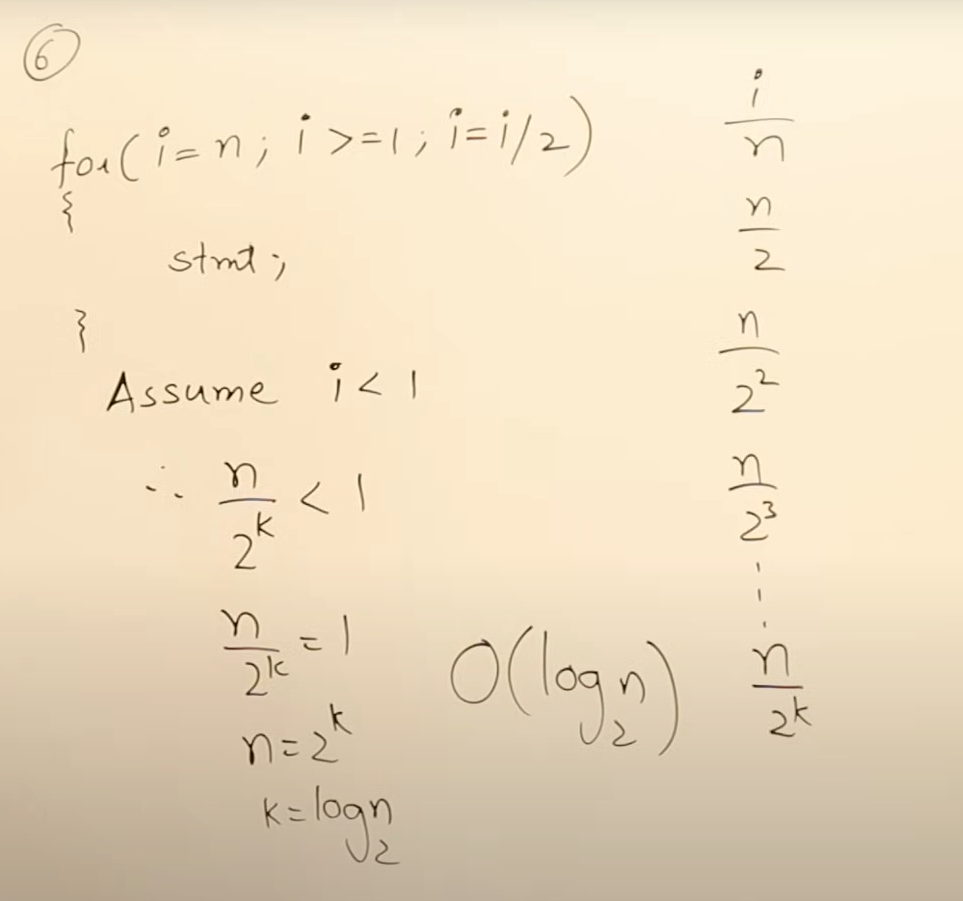 6
for(i=n; i>=1; i=i/2)
{
stmt;
}
Assume i<1
∴ n/2^k < 1
n/2^k = 1
n=2^k
k=log₂n
O(log₂n)
i
n
n/2
n/2^2
n/2^3
⋮
n/2^k